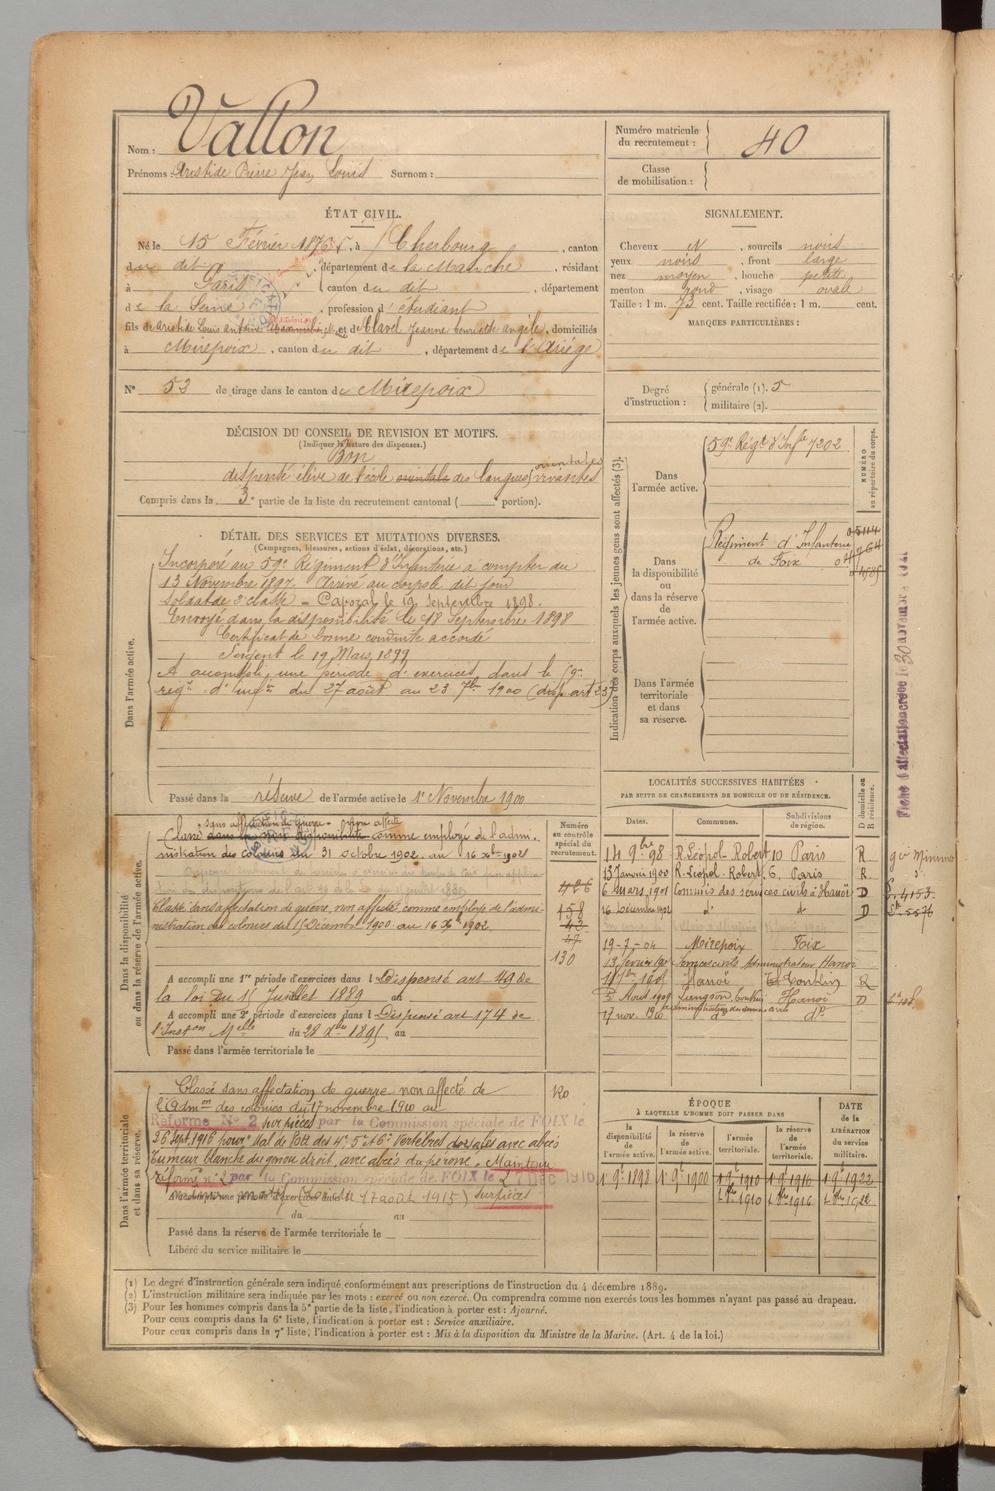 Nom : Vallon
Prénoms : Aristide Pierre Jean Louis Surnom :
Numéro matricule du recrutement : 40
Classe de mobilisation :
ÉTAT CIVIL.
Né le 15 Février 1876, à Cherbourg, canton
du dit, département de la Manche, résidant
à Paris, canton du dit, département
de la Seine, profession d'étudiant
fils de Aristide Louis Antoine et de Clavel Jeanne Henriette Angèle, domiciliés
à Mirepoix, canton du dit, département de l'Ariège
N° 52 de tirage dans le canton de Mirepoix
SIGNALEMENT.
Cheveux N, sourcils noirs
yeux noirs, front large
nez moyen, bouche petite,
menton rond, visage ovale
Taille : 1 m. 73 cent. Taille rectifiée : 1 m. cent.
MARQUES PARTICULIÈRES :
Degré d'instruction : générale (1). 5
militaire (2).
DÉCISION DU CONSEIL DE REVISION ET MOTIFS.
(Indiquer la nature des dispenses.)
Bon
orientales
dispensé élève de l'école orientale des langues vivantes
Compris dans la 3e partie de la liste du recrutement cantonal ( portion).
DÉTAIL DES SERVICES ET MUTATIONS DIVERSES.
(Campagnes, blessures, actions d'éclat, décorations, etc.)
Dans l'armée active.
Incorporé au 59e Régiment d'Infanterie à compter du
13 Novembre 1897. Arrivé au corps le dit jour
Soldat de 2e classe = Caporal le 19 Septembre 1898.
Envoyé dans la disponibilité le 18 Septembre 1898
Certificat de bonne conduite accordé
Sergent le 19 Mars 1899
A accompli une période d'exercices dans le 59e
régt d'infie du 27 août au 23 7bre 1900 (disp. art 23)
Passé dans la réserve de l'armée active le 1er Novembre 1900
Indication des corps auxquels les jeunes gens sont affectés (3).
NUMÉRO au répertoire du corps.
Dans l'armée active.
59e Régt d'Infie 7202
Dans la disponibilité ou dans la réserve de l'armée active.
Régiment d'Infanterie
de Foix
Dans l'armée territoriale et dans sa réserve.
LOCALITÉS SUCCESSIVES HABITÉES
PAR SUITE DE CHANGEMENTS DE DOMICILE OU DE RÉSIDENCE.
D domicile ou R résidence.
Dates. Communes. Subdivisions de région.
14 9bre 98 R. Léopol-Robert 10 Paris R
13 Janvier 1900 R. Léopol-Robert, 6, Paris R
6 mars 1901 Commis des services civils à Hanoï D
16 Décembre 1902 do do D
19-7-04 Mirepoix Foix
Services civils Administrateur Hanoï
Hanoï Tonkin R
Août 1909 Langson, Tonkin Hanoï D
17 nov. 1910 do do
Dans la disponibilité ou dans la réserve de l'armée active.
Numéro au contrôle spécial du recrutement.
sans affectation de guerre non affecté
Classé dans la non disponibilité comme employé de l'admi-
nistration des colonies du 31 octobre 1902 au 16 Xbre 1902
Classé sans affectation de guerre, non affecté comme employé de l'admi-
nistration des colonies du 1er Décembre 1900 au 16 Xbre 1902.
486
158
43
47
130
A accompli une 1re période d'exercices dans l Dispensé art 49 de
la loi du 15 Juillet 1889 au
A accompli une 2e période d'exercices dans l Dispensé art 174 de
l'Inston Melle du 28 Xbre 1895 au
Passé dans l'armée territoriale le
Dans l'armée territoriale et dans sa réserve.
Classé sans affectation de guerre non affecté de
l'Admon des colonies du 17 novembre 1910 au
Réformé No 2 sur pièces par la Commission spéciale de FOIX le
26 Sept. 1916 pour "Mal de Pott des 4e 5e et 6e vertèbres dorsales avec abcès
tumeur blanche du genou droit, avec abcès du péroné". Maintenu
réformé n° 2 par la Commission spéciale de FOIX le 27 DEC 1916
17 août 1915) sur pièces
du au
Passé dans la réserve de l'armée territoriale le
Libéré du service militaire le
ÉPOQUE
À LAQUELLE L'HOMME DOIT PASSER DANS
la disponibilité de l'armée active. la réserve de l'armée active. l'armée territoriale. la réserve de l'armée territoriale.
DATE de la LIBÉRATION du service militaire.
1 9e 1898 1 9e 1900 1 9e 1910 1 9e 1916 1 9e 1922
1 8bre 1910 1 8bre 1916 1 8bre 1922
Fiche d'affectation créée le 30 novembre
(1) Le degré d'instruction générale sera indiqué conformément aux prescriptions de l'instruction du 4 décembre 1889.
(2) L'instruction militaire sera indiquée par les mots : exercé ou non exercé. On comprendra comme non exercés tous les hommes n'ayant pas passé au drapeau.
(3) Pour les hommes compris dans la 5e partie de la liste, l'indication à porter est : Ajourné.
Pour ceux compris dans la 6e liste, l'indication à porter est : Service auxiliaire.
Pour ceux compris dans la 7e liste, l'indication à porter est : Mis à la disposition du Ministre de la Marine. (Art. 4 de la loi.)